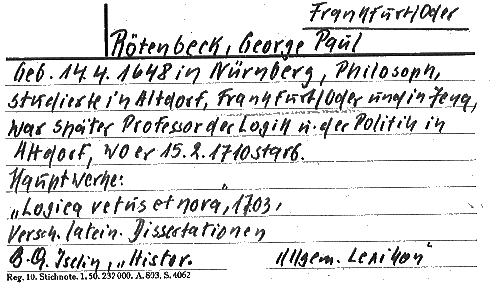 Frankfurt/Oder
Rötenbeck, George Paul
Geb. 14.4. 1648 in Nürnberg, Philosoph,
studierte in Altdorf, Frankfurt/Oder und in Jena,
war später Professor der Logik u. der Politik in
Altdorf, wo er 15.2.1710 starb.
Hauptwerke:
„Logica vetus et nova", 1703,
Versch. latein. Dissertationen
B. G. Iselin, „Histor. Allgem. Lexikon"
Reg. 10. Stichnote. 1. 50. 232 000. A. 893. S. 4062